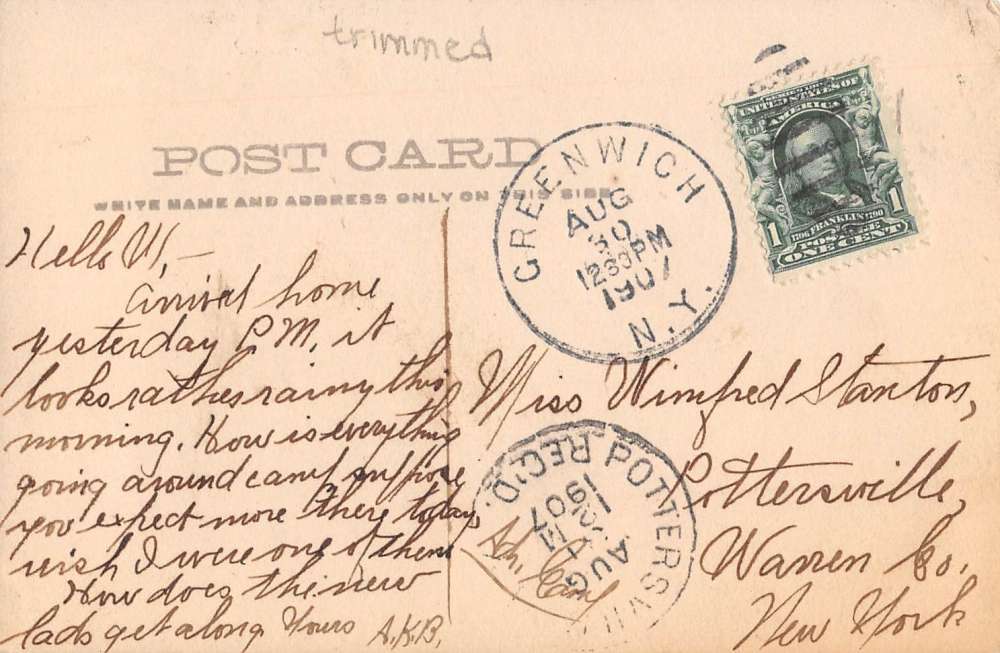 trimmed
POST CARD
WRITE NAME AND ADDRESS ONLY ON THIS SIDE
SERIES 1902
UNITED STATES OF
AMERICA
1706 FRANKLIN 1790
POSTAGE
1 ONE CENT 1
GREENWICH
AUG
30
1230PM
1907
N.Y.
Hello W,—
arrived home
yesterday P.M, it
looks rather rainy this
morning. How is everything
going around camp suppose
you expect more there today,
wish I were one of them
How does the new
lads get along Yours A.K.B.
Miss Winifred Stanton,
Pottersville,
Warren Co.
New York
Camp
POTTERSVILLE
REC'D.
AUG
1907